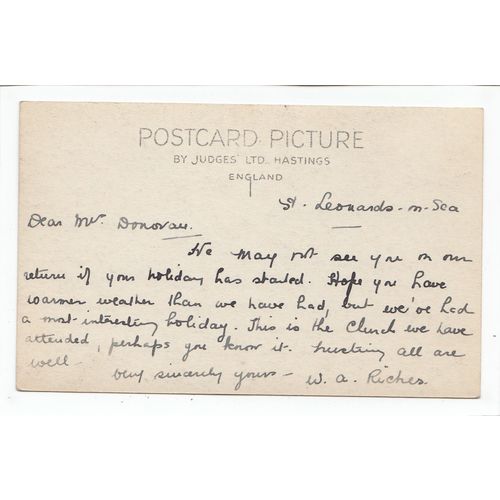 POSTCARD PICTURE
BY JUDGES' LTD. HASTINGS
ENGLAND
St. Leonards-on-Sea
Dear Mr. Donovan.
We may not see you on our
return if your holiday has started. Hope you have
warmer weather than we have had, but we've had
a most interesting holiday. This is the Church we have
attended, perhaps you know it. Trusting all are
well -
very sincerely yours - W. A. Riches.